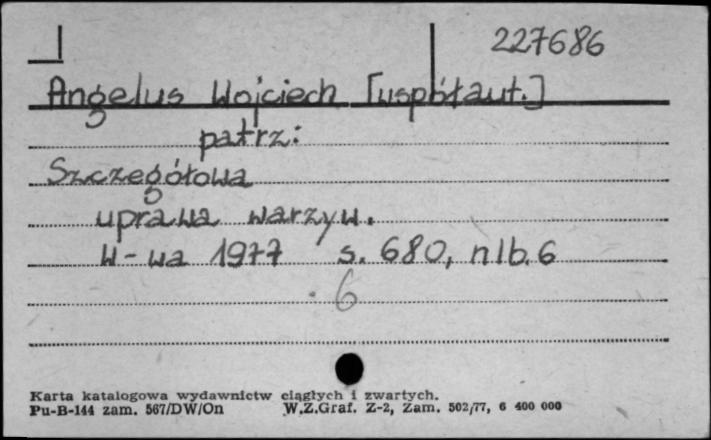 227686
Angelus Wojciech [współaut.]
patrz:
Szczegółowa
uprawa warzyw.
W-wa 1977 s. 680, nlb. 6
6
Karta katalogowa wydawnictw ciągłych i zwartych.
Pu-B-144 zam. 567/DW/On W.Z.Graf. Z-2, Zam. 502/77, 6 400 000